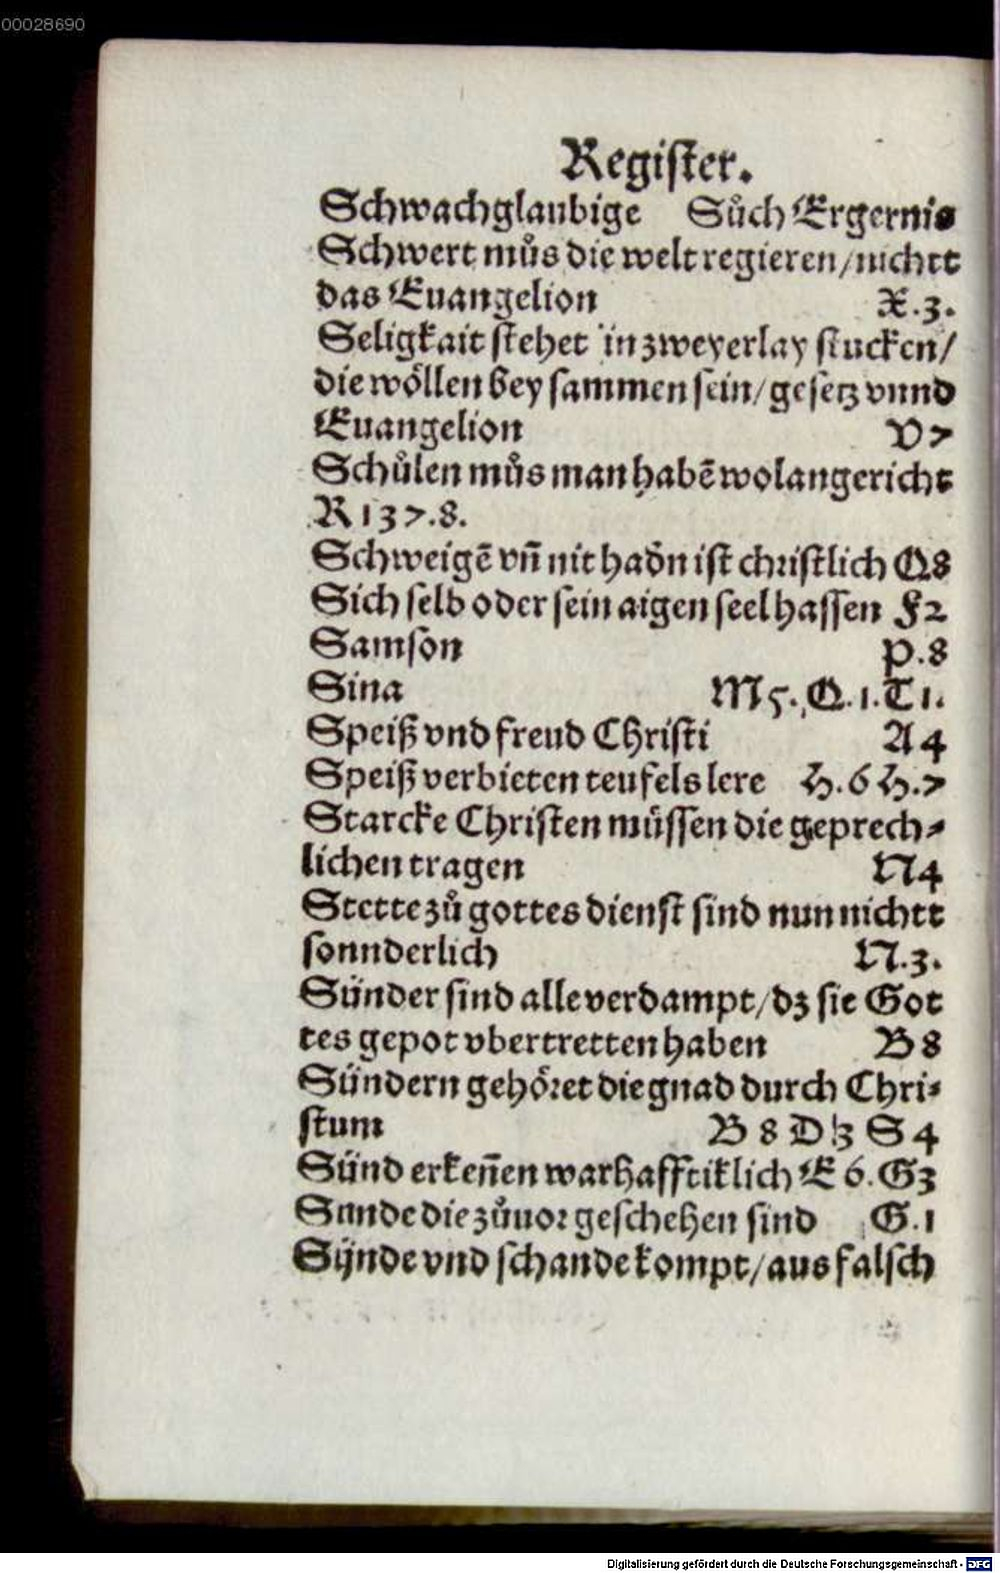 00028690
Regiſter.
Schwachglaubige Sůch Ergernis
Schwert můs die welt regieren/nichtt
das Euangelion X.3.
Seligkait ſtehet in zweyerlay ſtucken/
die wöllen bey ſammen ſein/geſetz vnnd
Euangelion V7
Schůlen můs man habē wolangericht
R 1 3 7.8.
Schweigē vn̄ nit hadn̄ iſt chriſtlich Q8
Sich ſelb oder ſein aigen ſeel haſſen F2
Samſon p.8
Sina M5. Q.1.T1.
Speiß vnd freud Chriſti A4
Speiß verbieten teufels lere H.6 H.7
Starcke Chriſten müſſen die geprech⸗
lichen tragen N4
Stette zů gottes dienſt ſind nun nichtt
ſonnderlich N.3.
Sünder ſind alle verdampt/dz ſie Got
tes gepot vbertretten haben B8
Sündern gehöꝛet die gnad durch Chri⸗
ſtum B 8 D 3 S 4
Sünd erken̄en warhafftiklich E 6. G3
Sunde die zůuoꝛ geſchehen ſind G.1
Sÿnde vnd ſchande kompt/aus falſch
Digitalisierung gefördert durch die Deutsche Forschungsgemeinschaft - DFG